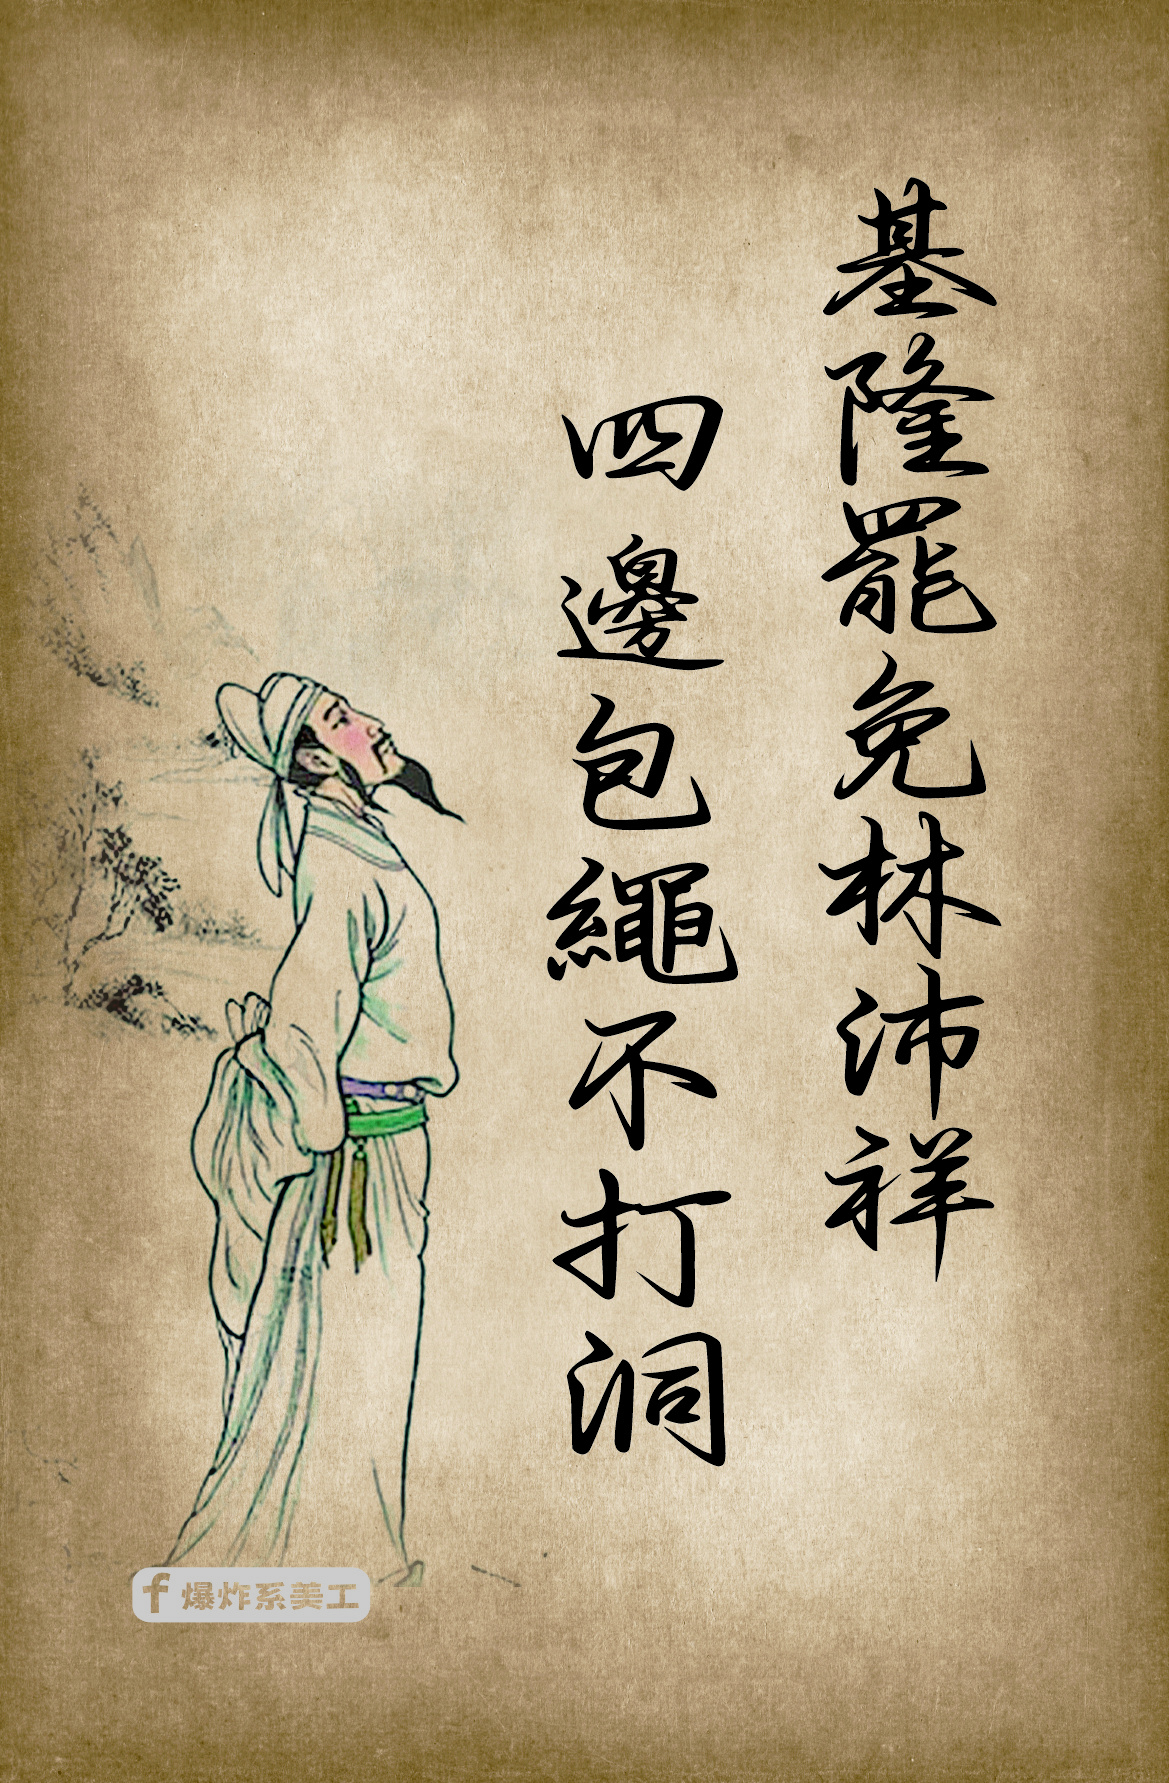 基隆罷免林沛祥
四邊包繩不打洞
f 爆炸系美工